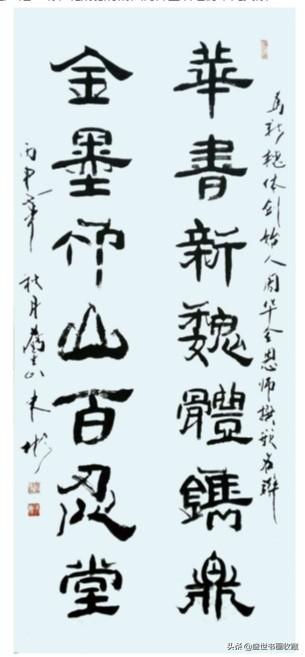 為新魏体创始人周华金恩师撰嵌名联
華書新魏體鐫鼎
金墨山百忍堂
丙申年秋月
头条@盛世书画收藏